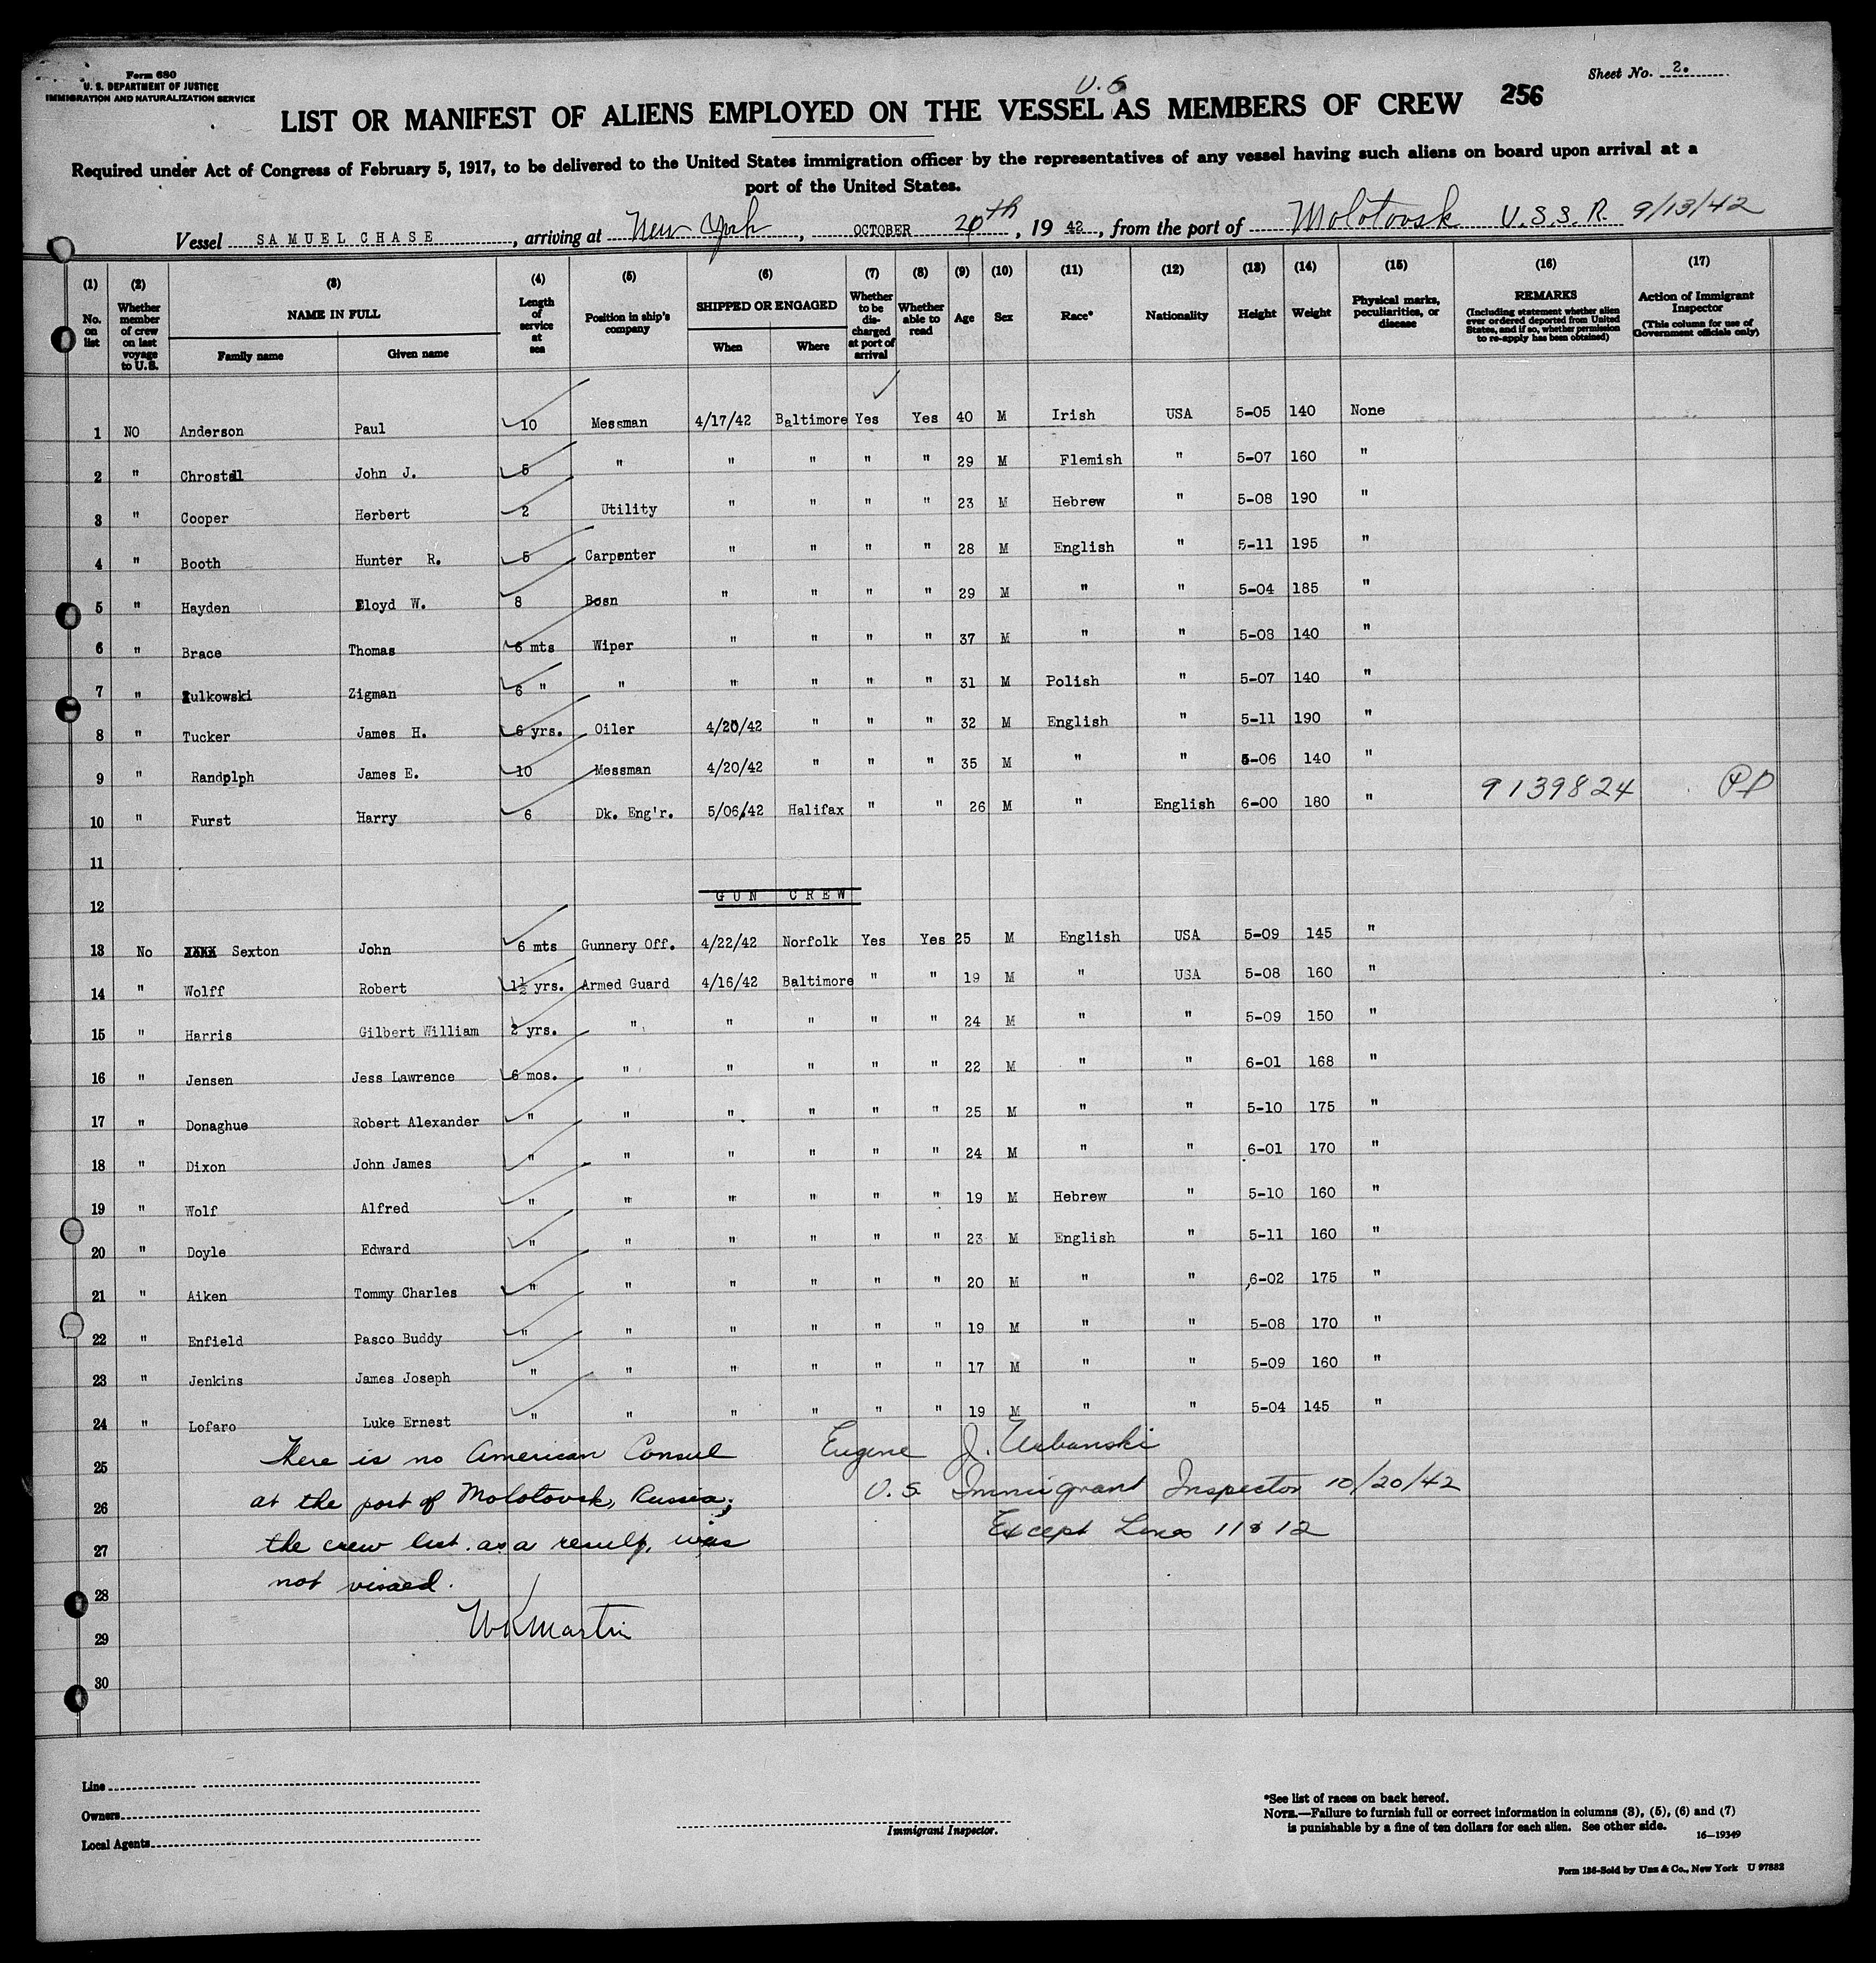 Form 680
U. S. DEPARTMENT OF JUSTICE
IMMIGRATION AND NATURALIZATION SERVICE
Sheet No. 2.
U.S
LIST OR MANIFEST OF ALIENS EMPLOYED ON THE VESSEL AS MEMBERS OF CREW 256
Required under Act of Congress of February 5, 1917, to be delivered to the United States immigration officer by the representatives of any vessel having such aliens on board upon arrival at a
port of the United States.
Vessel SAMUEL CHASE, arriving at New York, OCTOBER 20th, 19 42, from the port of Molotovsk U.S.S.R. 9/13/42
(1) (2) (3) (4) (5) (6) (7) (8) (9) (10) (11) (12) (13) (14) (15) (16) (17)
No. on list
Whether member of crew on last voyage to U.S.
NAME IN FULL
Family name Given name
Length of service at sea
Position in ship's company
SHIPPED OR ENGAGED
When Where
Whether to be discharged at port of arrival
Whether able to read
Age
Sex
Race*
Nationality
Height
Weight
Physical marks, peculiarities, or disease
REMARKS
(Including statement whether alien ever ordered deported from United States, and if so, whether permission to re-apply has been obtained)
Action of Immigrant Inspector
(This column for use of Government officials only)
1 NO Anderson Paul 10 Messman 4/17/42 Baltimore Yes Yes 40 M Irish USA 5-05 140 None
2 " John J. 5 " " " " " 29 M Flemish " 5-07 160 "
3 " Cooper Herbert 2 Utility " " " " 23 M Hebrew " 5-08 190 "
4 " Booth Hunter R. 5 Carpenter " " " " 28 M English " 5-11 195 "
5 " Hayden Lloyd W. 8 Bosn " " " " 29 M " " 5-04 185 "
6 " Brace Thomas 6 mts Wiper " " " " 37 M " " 5-08 140 "
7 " Zulkowski Zigman 6 " " " " " " 31 M Polish " 5-07 140 "
8 " Tucker James H. 6 yrs. Oiler 4/20/42 " " " 32 M English " 5-11 190 "
9 " Randplph James E. 10 Messman 4/20/42 " " " 35 M " " 5-06 140 "
10 " Furst Harry 6 Dk. Eng'r. 5/06/42 Halifax " " 26 M " English 6-00 180 " 9139824
11
12 GUN CREW
13 No Sexton John 6 mts Gunnery Off. 4/22/42 Norfolk Yes Yes 25 M English USA 5-09 145 "
14 " Wolff Robert 1½ yrs. Armed Guard 4/16/42 Baltimore " " 19 M " USA 5-08 160 "
15 " Harris Gilbert William 2 yrs. " " " " " 24 M " " 5-09 150 "
16 " Jensen Jess Lawrence 6 mos. " " " " " 22 M " " 6-01 168 "
17 " Donaghue Robert Alexander " " " " " " 25 M " " 5-10 175 "
18 " Dixon John James " " " " " " 24 M " " 6-01 170 "
19 " Wolf Alfred " " " " " " 19 M Hebrew " 5-10 160 "
20 " Doyle Edward " " " " " " 23 M English " 5-11 160 "
21 " Aiken Tommy Charles " " " " " " 20 M " " 6-02 175 "
22 " Enfield Pasco Buddy " " " " " " 19 M " " 5-08 170 "
23 " Jenkins James Joseph " " " " " " 17 M " " 5-09 160 "
24 " Lofaro Luke Ernest " " " " " " 19 M " " 5-04 145 "
25 There is no American Consul Eugene J. Urbanski
26 at the port of Molotovsk, Russia; U.S. Immigrant Inspector 10/20/42
27 the crew list as a result, was Except Lines 11 & 12
28 not visaed.
29 WKMartin
30
Line
Owners
Local Agents
Immigrant Inspector.
*See list of races on back hereof.
NOTE.—Failure to furnish full or correct information in columns (3), (5), (6) and (7)
is punishable by a fine of ten dollars for each alien. See other side.
16—19349
Form 186-Sold by Unz & Co., New York U 97882